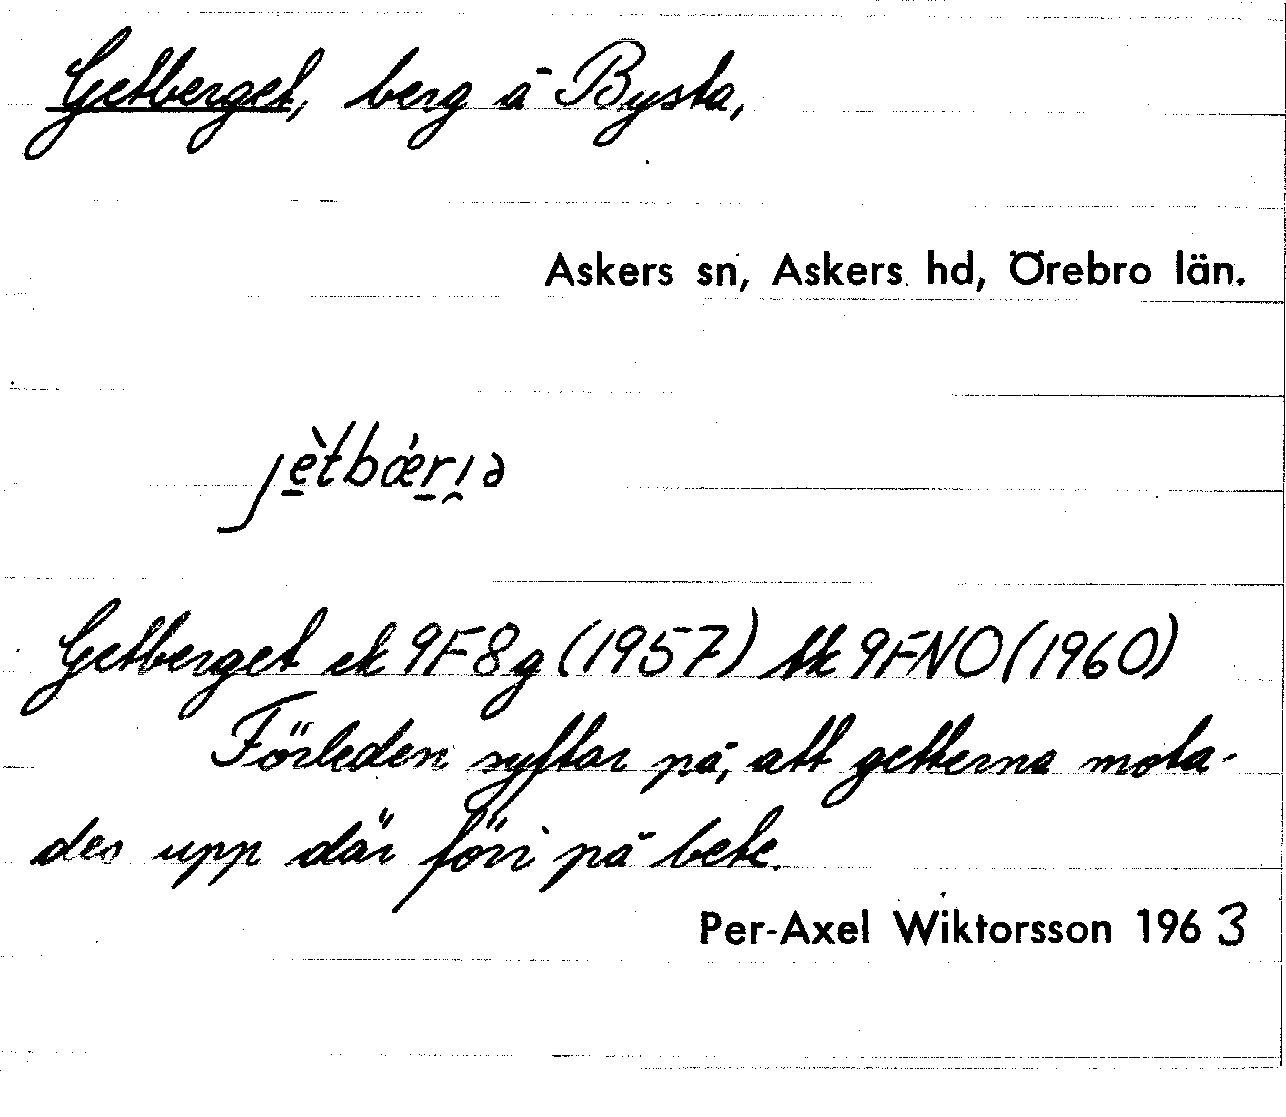 Getberget, berg å Bysta,
Askers sn, Askers hd, Örebro län.
jèṯbǽṟı̯ə
Getberget ek 9F8g (1957) tk 9FNO (1960)
Förleden syftar på, att getterna mota-
des upp där förr på bete.
Per-Axel Wiktorsson 1963